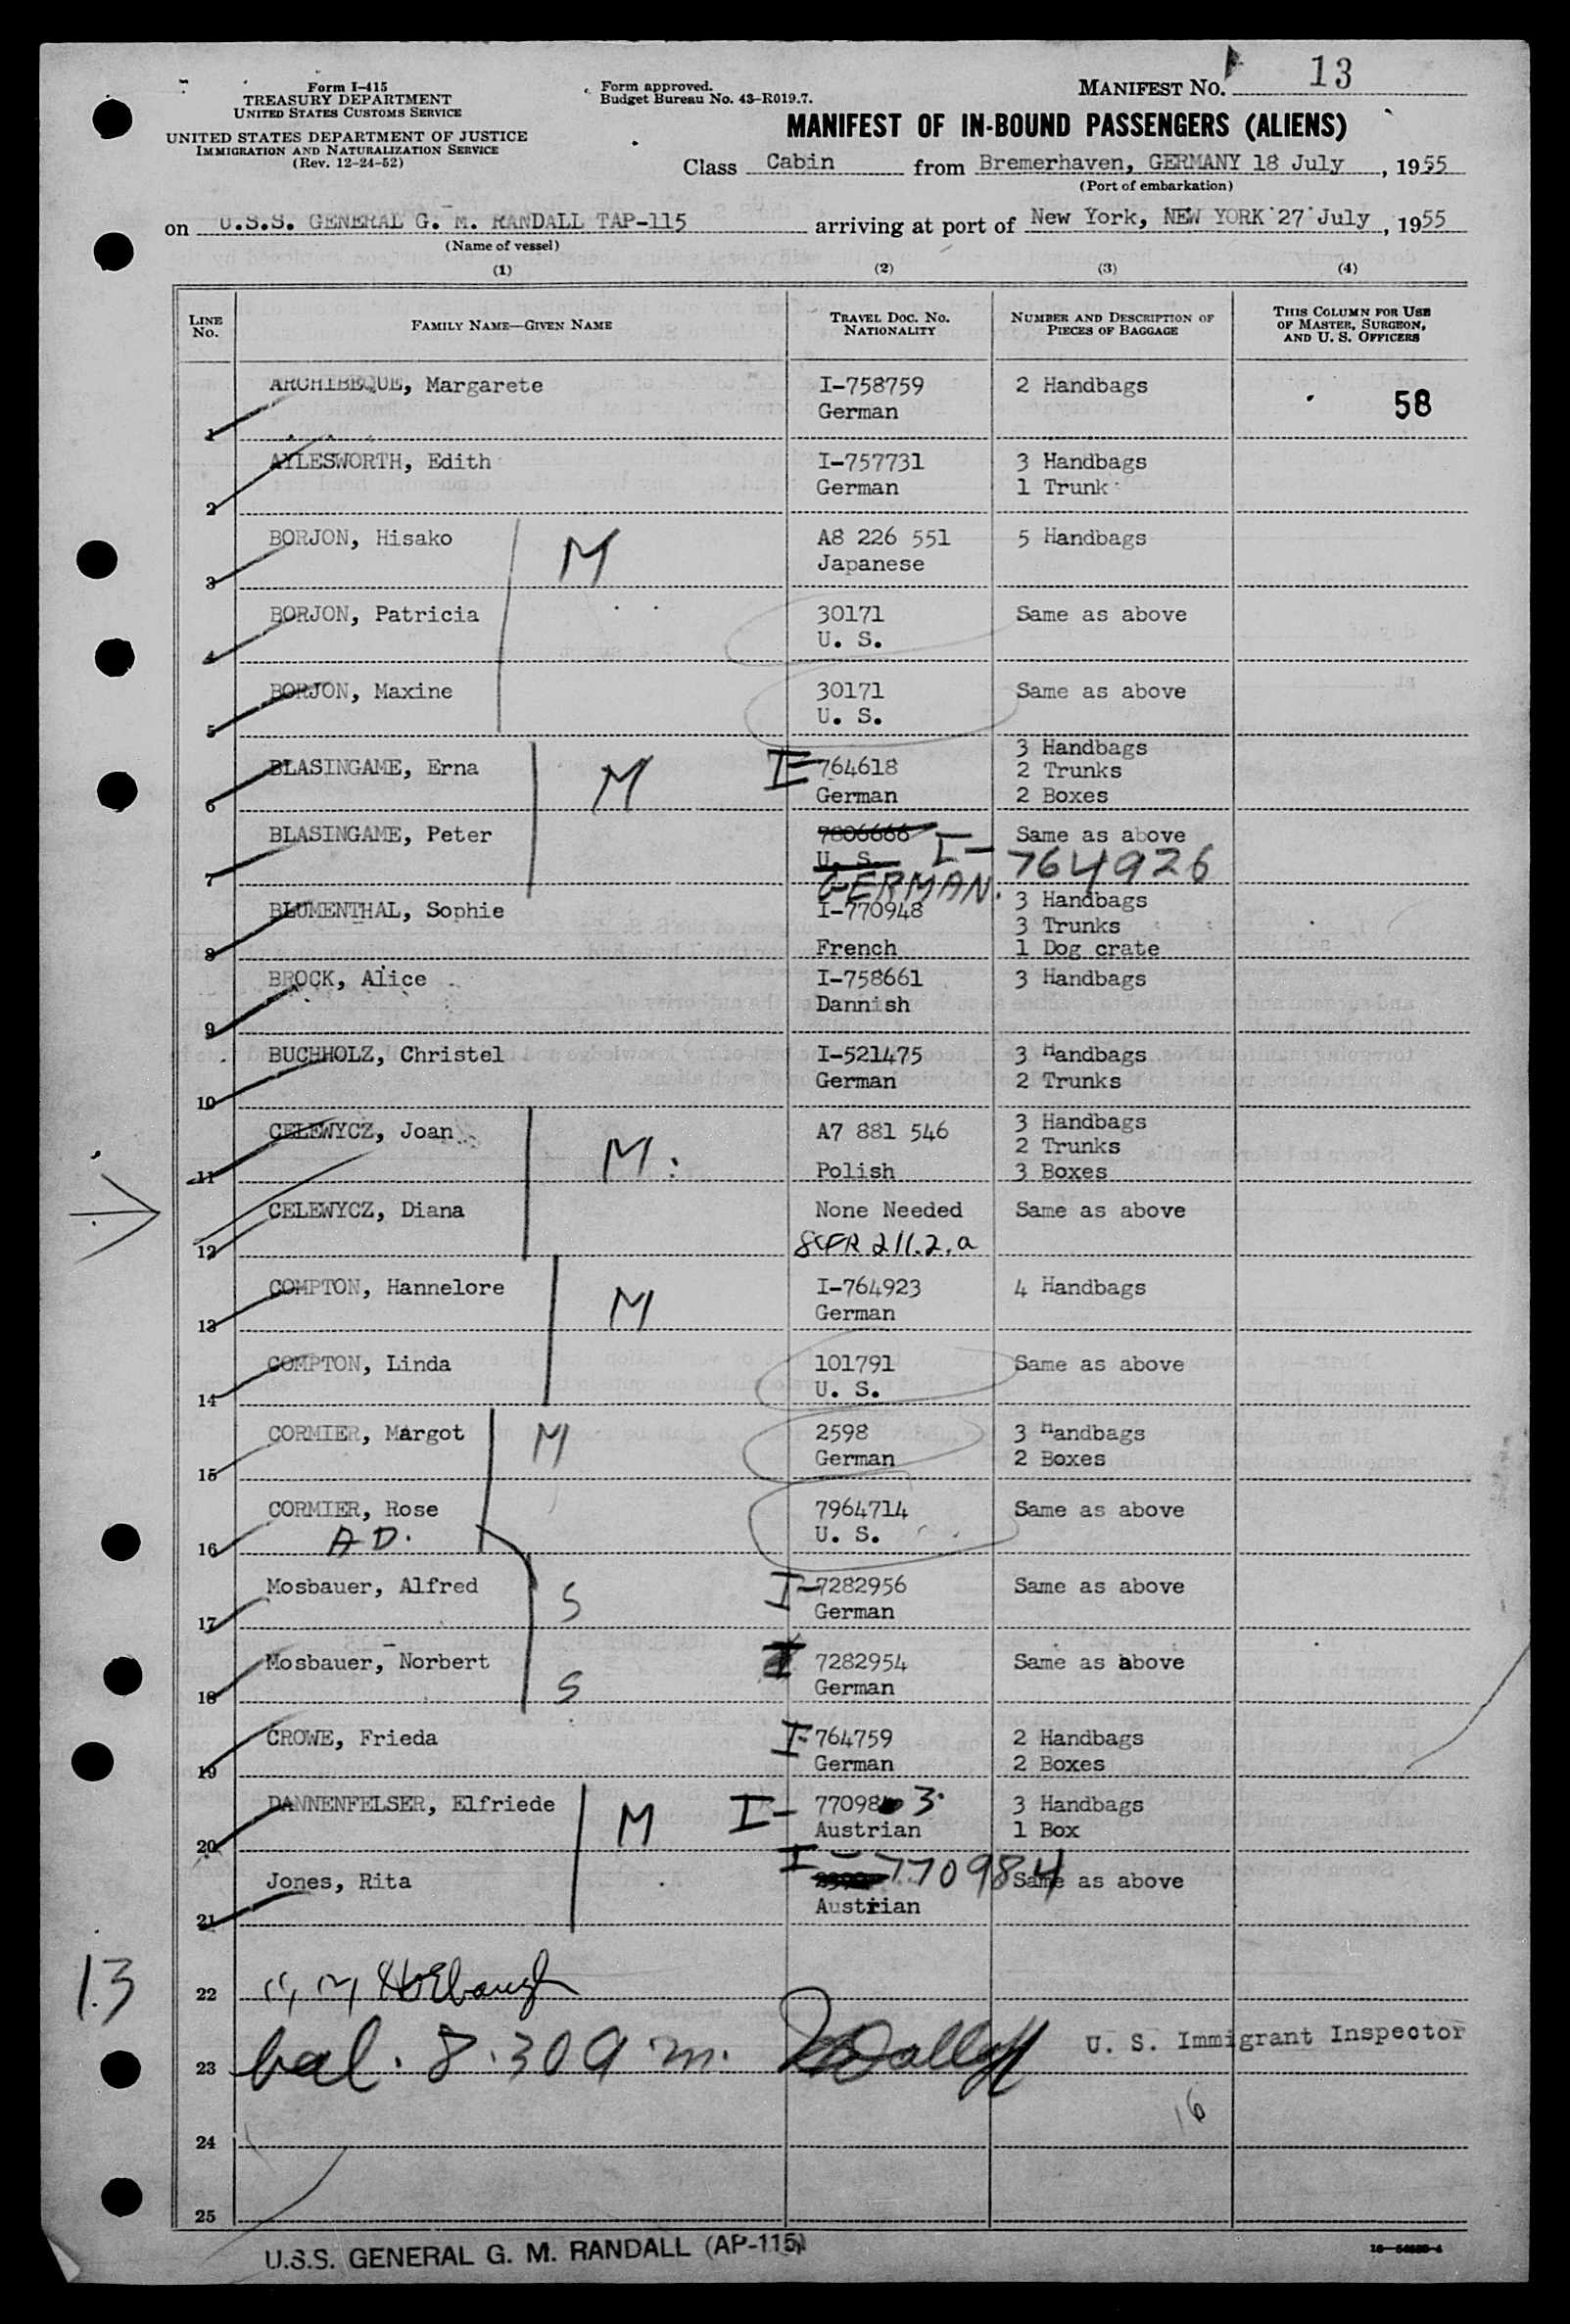 Form I-415
TREASURY DEPARTMENT
UNITED STATES CUSTOMS SERVICE
UNITED STATES DEPARTMENT OF JUSTICE
IMMIGRATION AND NATURALIZATION SERVICE
(Rev. 12-24-52)
Form approved.
Budget Bureau No. 43-R019.7.
MANIFEST NO. 13
MANIFEST OF IN-BOUND PASSENGERS (ALIENS)
Class Cabin from Bremerhaven, GERMANY 18 July, 1955
(Port of embarkation)
on U.S.S. GENERAL G. M. RANDALL TAP-115 arriving at port of New York, NEW YORK 27 July, 1955
(Name of vessel)
(1) (2) (3) (4)
LINE NO. FAMILY NAME—GIVEN NAME TRAVEL DOC. NO. NATIONALITY NUMBER AND DESCRIPTION OF PIECES OF BAGGAGE THIS COLUMN FOR USE OF MASTER, SURGEON, AND U. S. OFFICERS
ARCHIBEQUE, Margarete I-758759 2 Handbags
1 German 58
AYLESWORTH, Edith I-757731 3 Handbags
2 German 1 Trunk
BORJON, Hisako M A8 226 551 5 Handbags
3 Japanese
BORJON, Patricia 30171 Same as above
4 U. S.
BORJON, Maxine 30171 Same as above
5 U. S.
3 Handbags
BLASINGAME, Erna M I-764618 2 Trunks
6 German 2 Boxes
BLASINGAME, Peter 7806666 Same as above
7 U. S. I-764926
GERMAN.
BLUMENTHAL, Sophie I-770948 3 Handbags
3 Trunks
8 French 1 Dog crate
BROCK, Alice I-758661 3 Handbags
9 Dannish
BUCHHOLZ, Christel I-521475 3 Handbags
10 German 2 Trunks
CELEWYCZ, Joan M: A7 881 546 3 Handbags
2 Trunks
11 Polish 3 Boxes
CELEWYCZ, Diana None Needed Same as above
12 8CFR 211.2.a
COMPTON, Hannelore M I-764923 4 Handbags
13 German
COMPTON, Linda 101791 Same as above
14 U. S.
CORMIER, Margot M 2598 3 Handbags
15 German 2 Boxes
CORMIER, Rose 7964714 Same as above
16 A D. U. S.
Mosbauer, Alfred S I-7282956 Same as above
17 German
Mosbauer, Norbert S I 7282954 Same as above
18 German
CROWE, Frieda I-764759 2 Handbags
19 German 2 Boxes
DANNENFELSER, Elfriede M I-770983 3 Handbags
20 Austrian 1 Box
Jones, Rita I-770984 Same as above
21 Austrian
13
22
23 bal. 8.30 a.m. U. S. Immigrant Inspector
16
24
25
U.S.S. GENERAL G. M. RANDALL (AP-115)